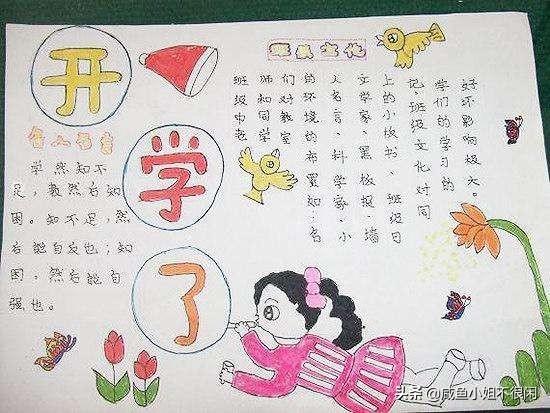 开
学
了
名人名言
学然知不
足，教然后知
困。知不足，然
后能自反也；知
困，然后能自
强也。
班级文化
班级中老
师和同学
们对教室
的环境的布置如：名
人名言、科学家、小
文学家、黑板报、墙
上的小板书、班级日
记。班级文化对同
学们的学习的
好坏影响极大。
头条 @咸鱼小姐不很闲